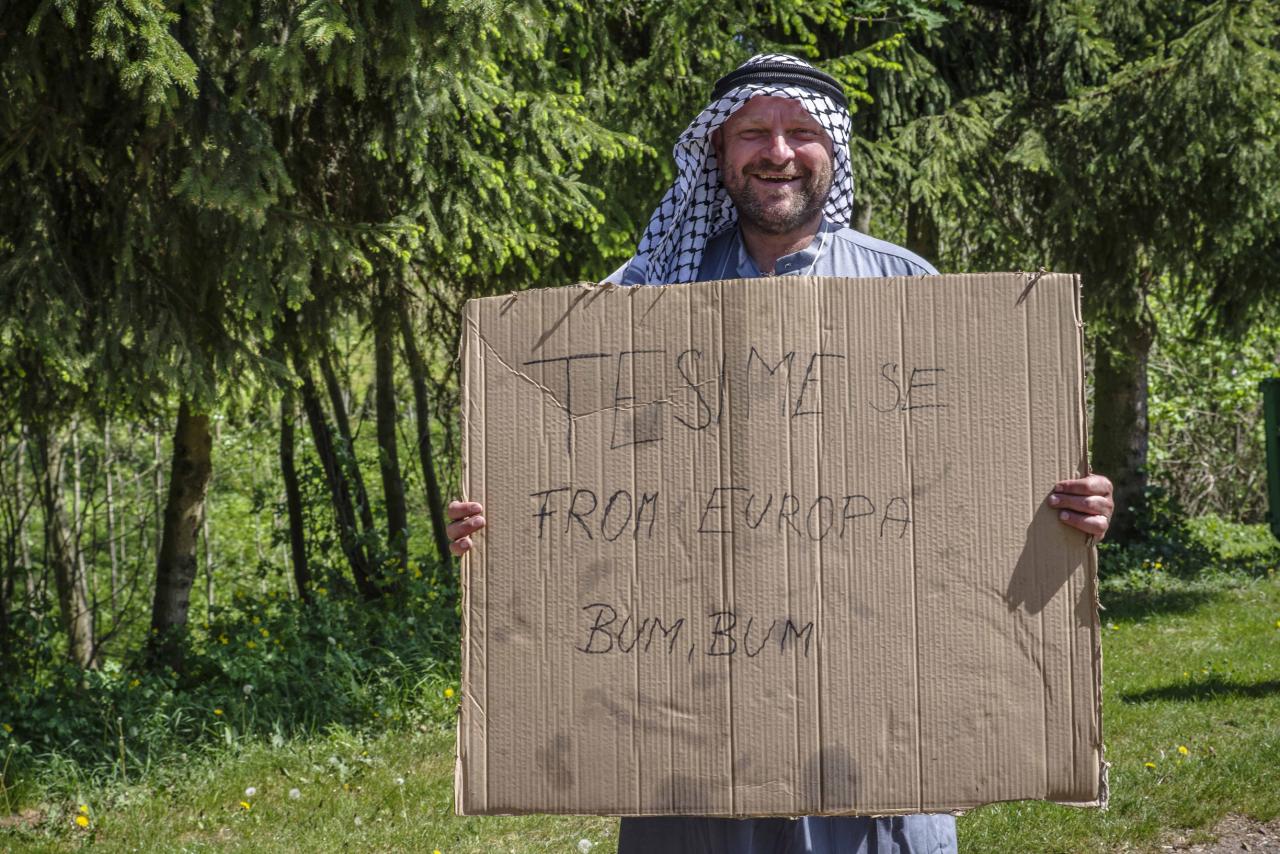 TESIME SE
FROM EUROPA
BUM, BUM